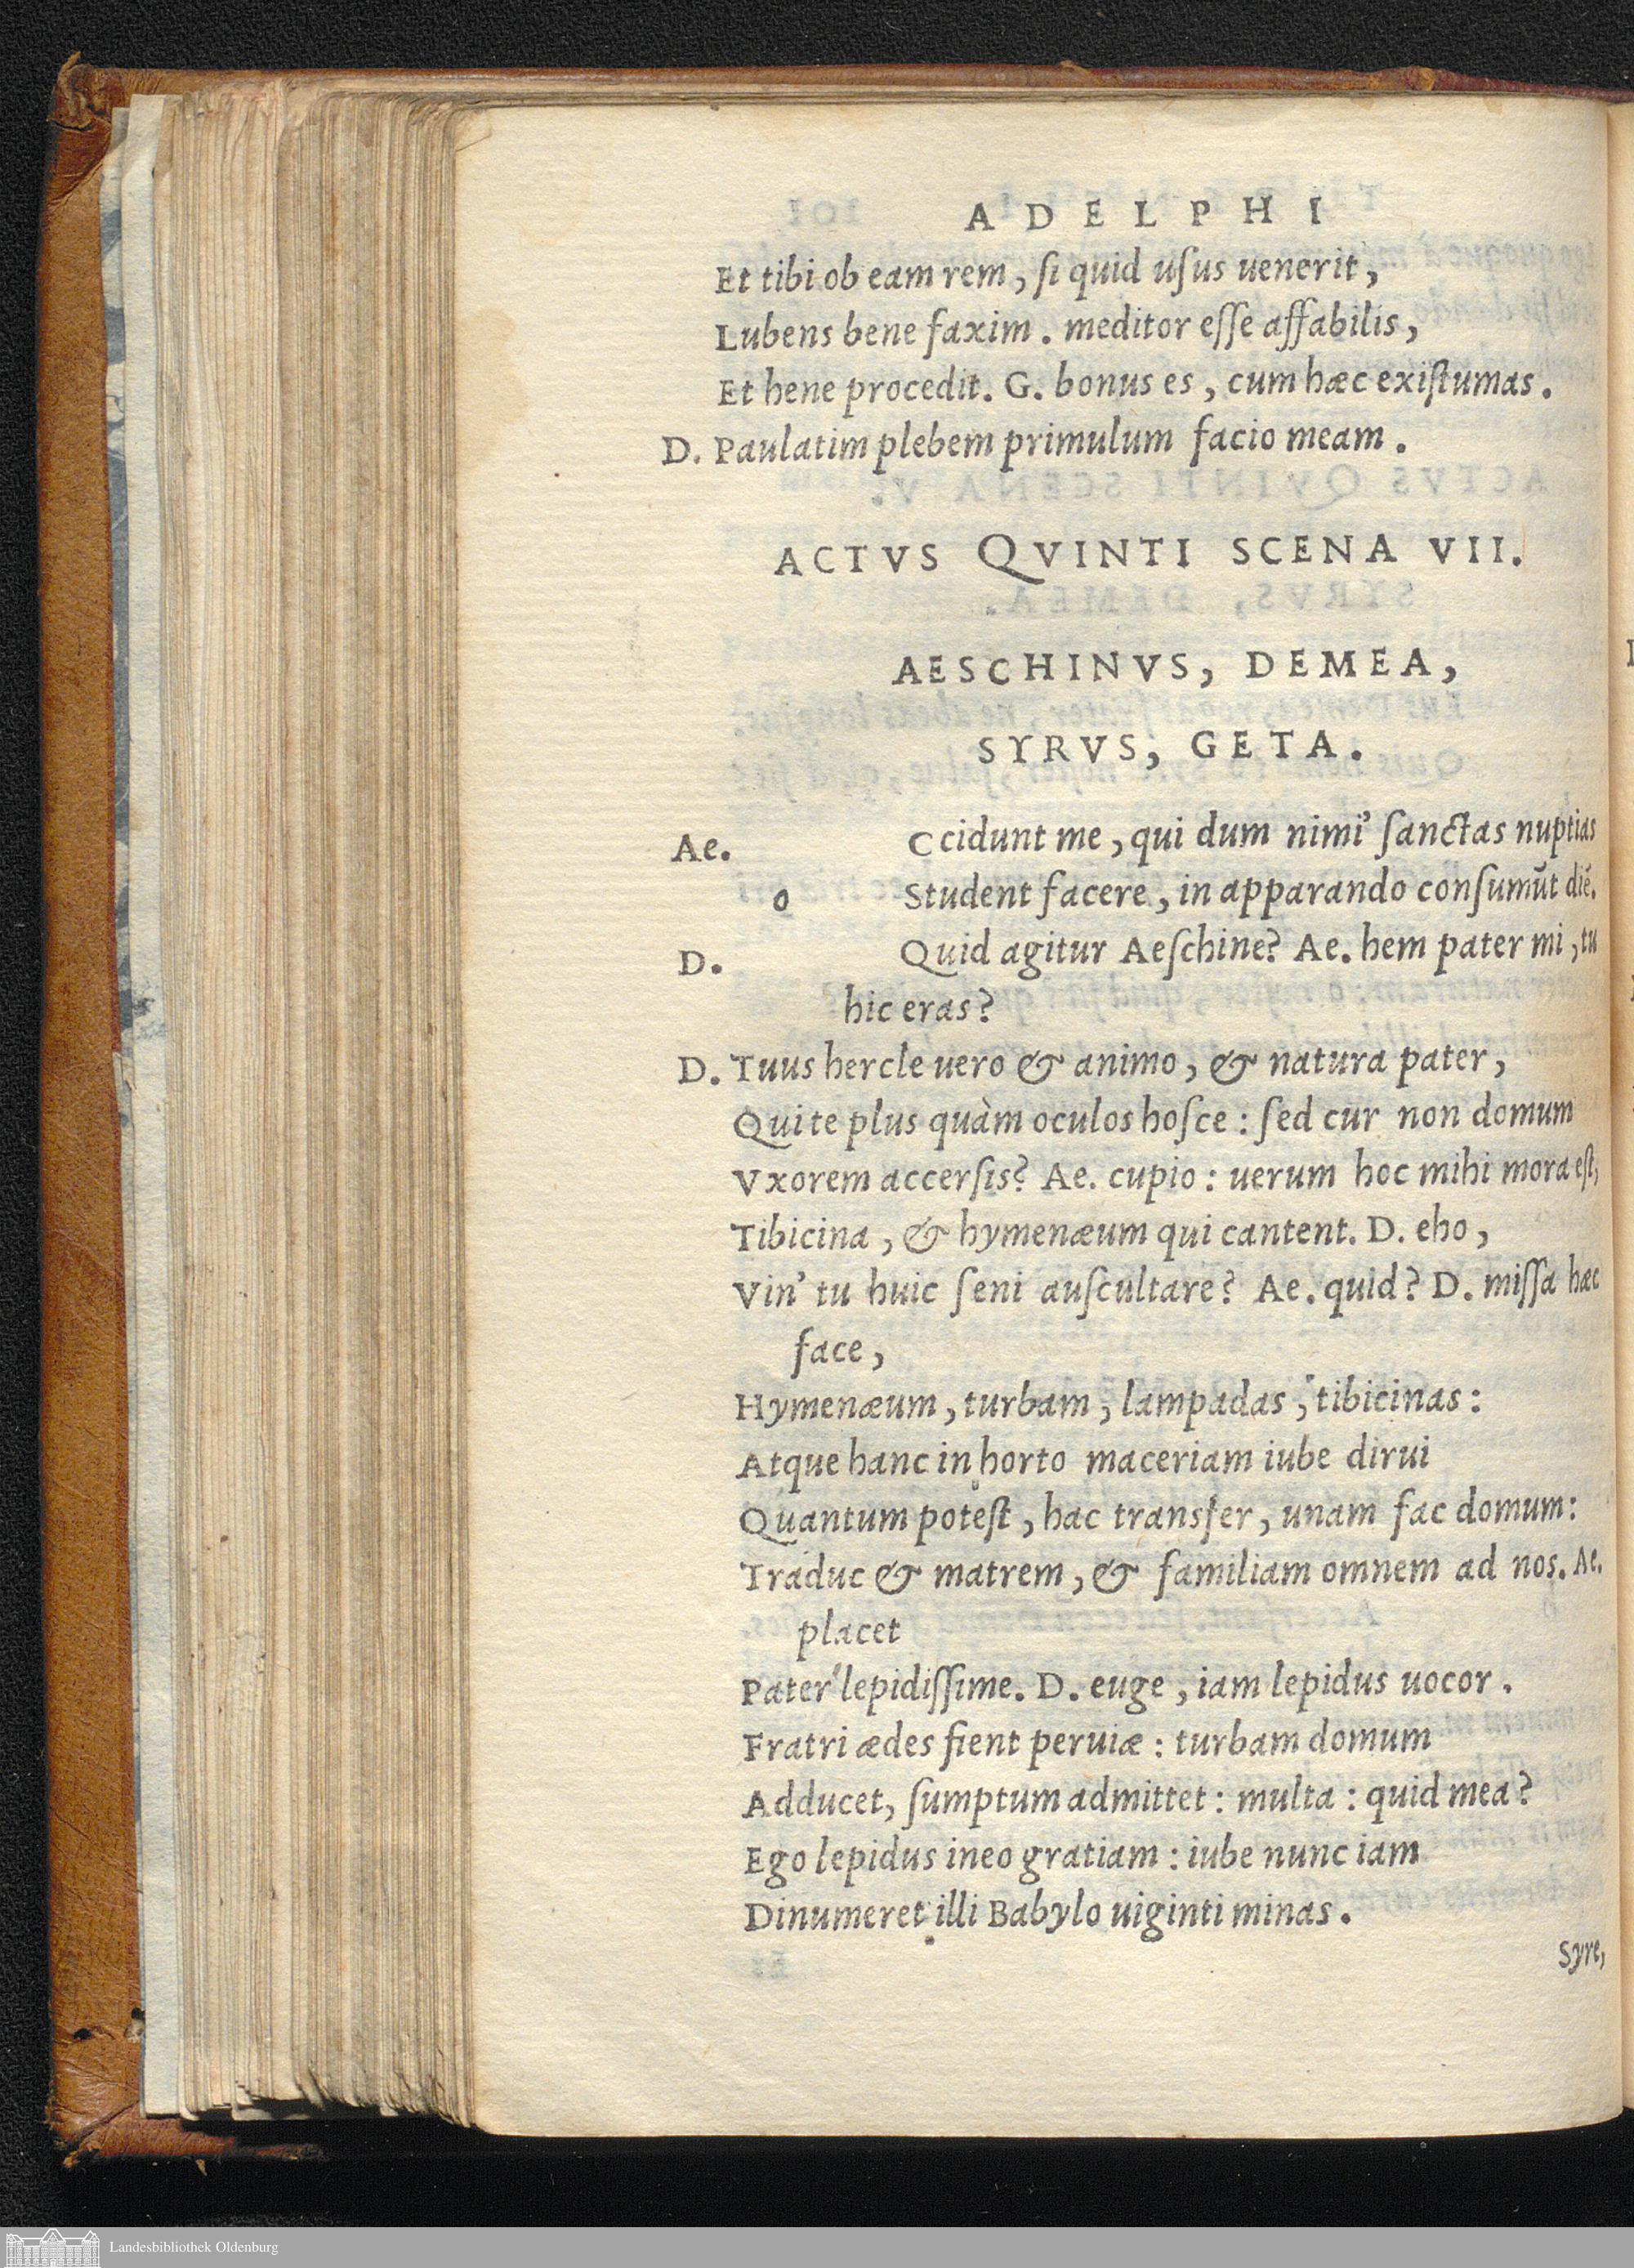 ADELPHI
Et tibi ob eam rem, ſi quid uſus uenerit,
Lubens bene faxim. meditor eſſe affabilis,
Et hene procedit. G. bonus es, cum hæc exiſtumas.
D. Paulatim plebem primulum facio meam.
ACTVS QVINTI SCENA VII.
AESCHINVS, DEMEA,
SYRVS, GETA.
Ae. Ccidunt me, qui dum nimi' ſanctas nuptias
o Student facere, in apparando conſumūt diē.
D. Quid agitur Aeſchine? Ae. hem pater mi, tu
hic eras?
D. Tuus hercle uero & animo, & natura pater,
Qui te plus quàm oculos hoſce: ſed cur non domum
Vxorem accerſis? Ae. cupio: uerum hoc mihi mora eſt,
Tibicina, & hymenæum qui cantent. D. eho,
Vin' tu huic ſeni auſcultare? Ae. quid? D. miſſa hæc
face,
Hymenæum, turbam, lampadas, tibicinas:
Atque hanc in horto maceriam iube dirui
Quantum poteſt, hac transfer, unam fac domum:
Traduc & matrem, & familiam omnem ad nos. Ae.
placet
Pater lepidiſſime. D. euge, iam lepidus uocor.
Fratri ædes fient peruiæ: turbam domum
Adducet, ſumptum admittet: multa: quid mea?
Ego lepidus ineo gratiam: iube nunc iam
Dinumeret illi Babylo uiginti minas.
Syre,
Landesbibliothek Oldenburg